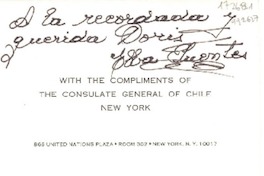 A la recordada y
querida Doris
Elba Fuentes
WITH THE COMPLIMENTS OF
THE CONSULATE GENERAL OF CHILE
NEW YORK
866 UNITED NATIONS PLAZA • ROOM 302 • NEW YORK, N. Y. 10017